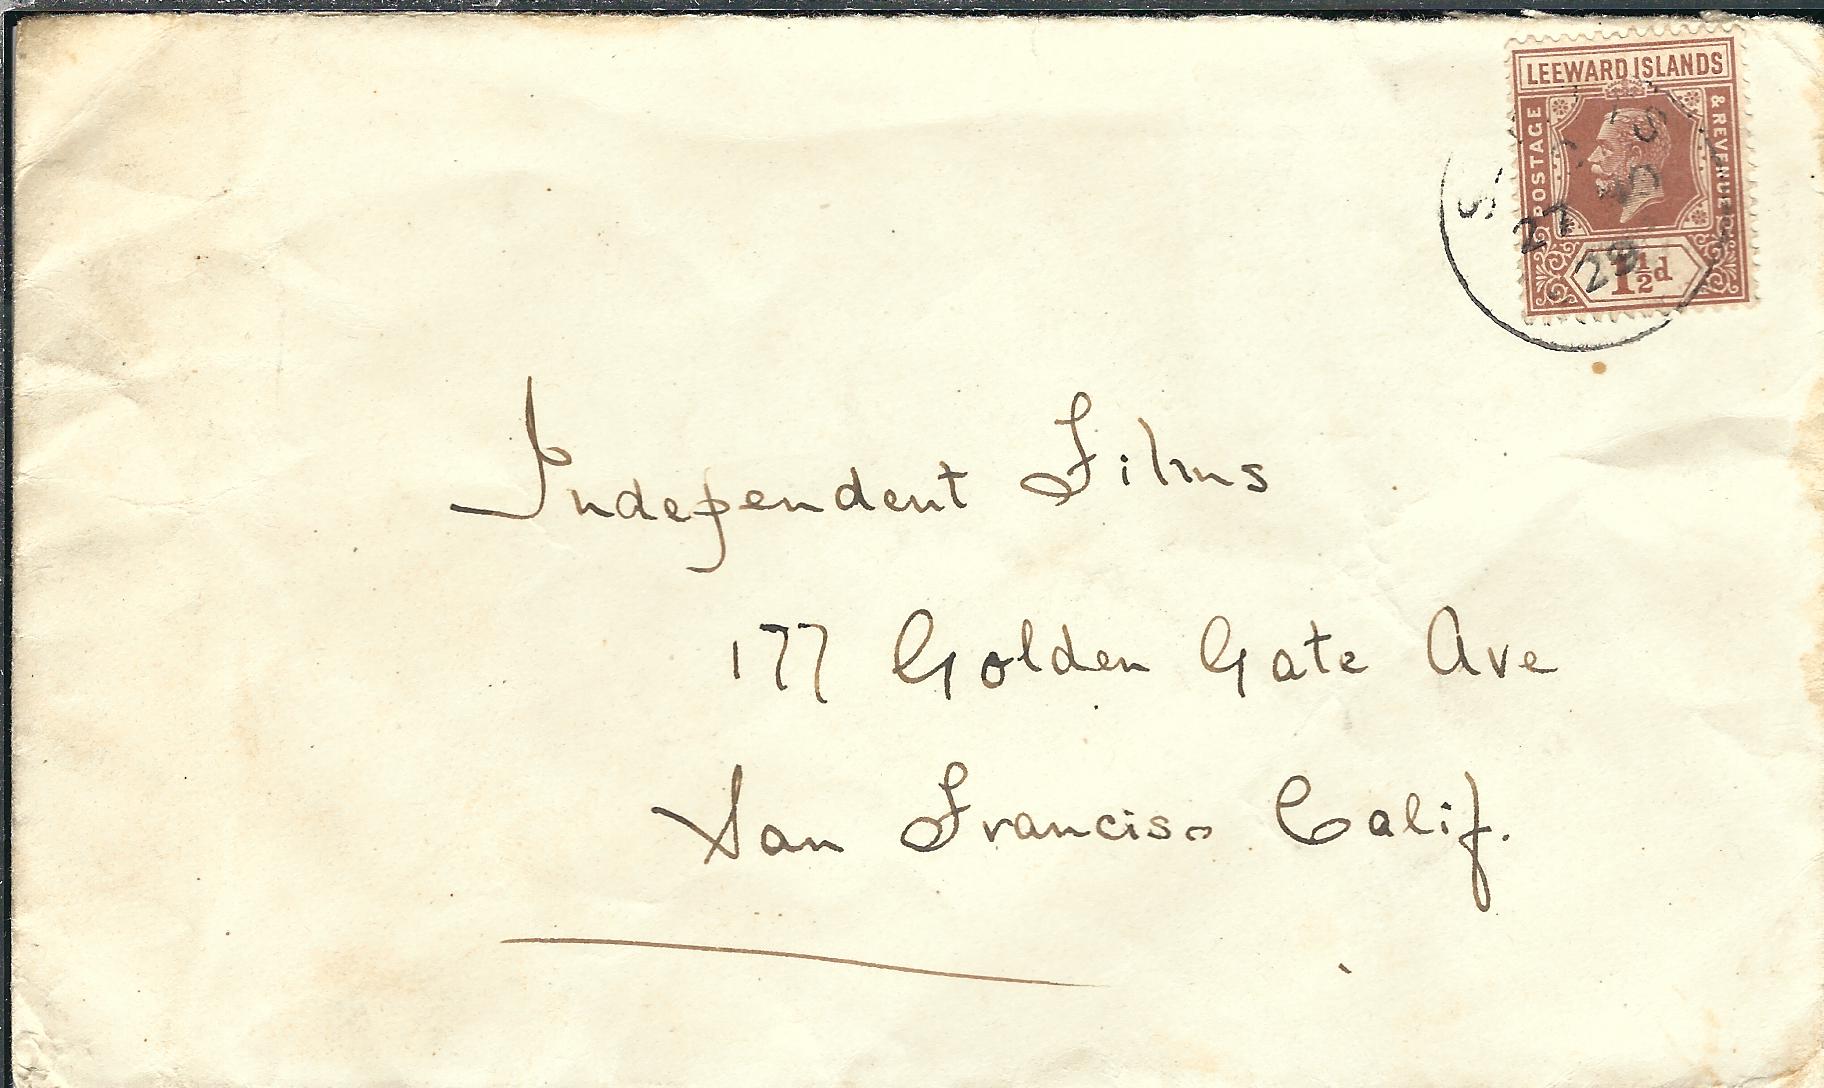 LEEWARD ISLANDS
POSTAGE
& REVENUE
1½d
27
29
Independent Films
177 Golden Gate Ave
San Franciso Calif.